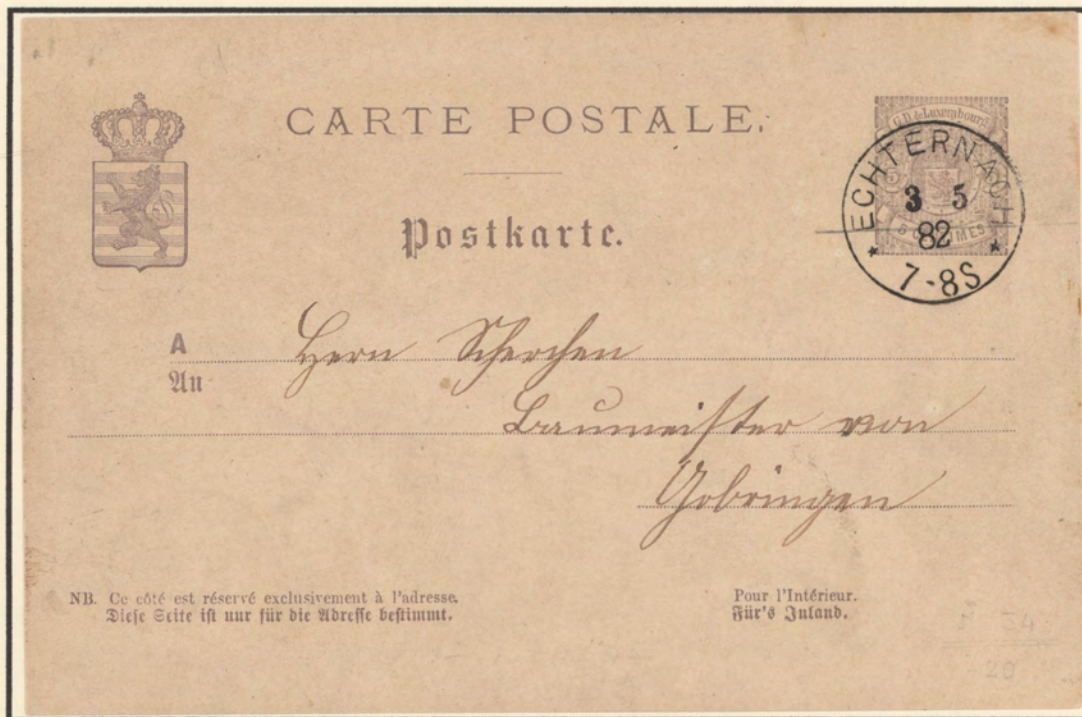 CARTE POSTALE.
Postkarte.
G.D. de Luxembourg
ECHTERNACH
3 5
82
7-8S
A Herrn Scherchen
An
Baumeister von
Gobringen
NB. Ce côté est réservé exclusivement à l'adresse.
Diese Seite ist nur für die Adresse bestimmt.
Pour l'Intérieur.
Für's Inland.
34
20